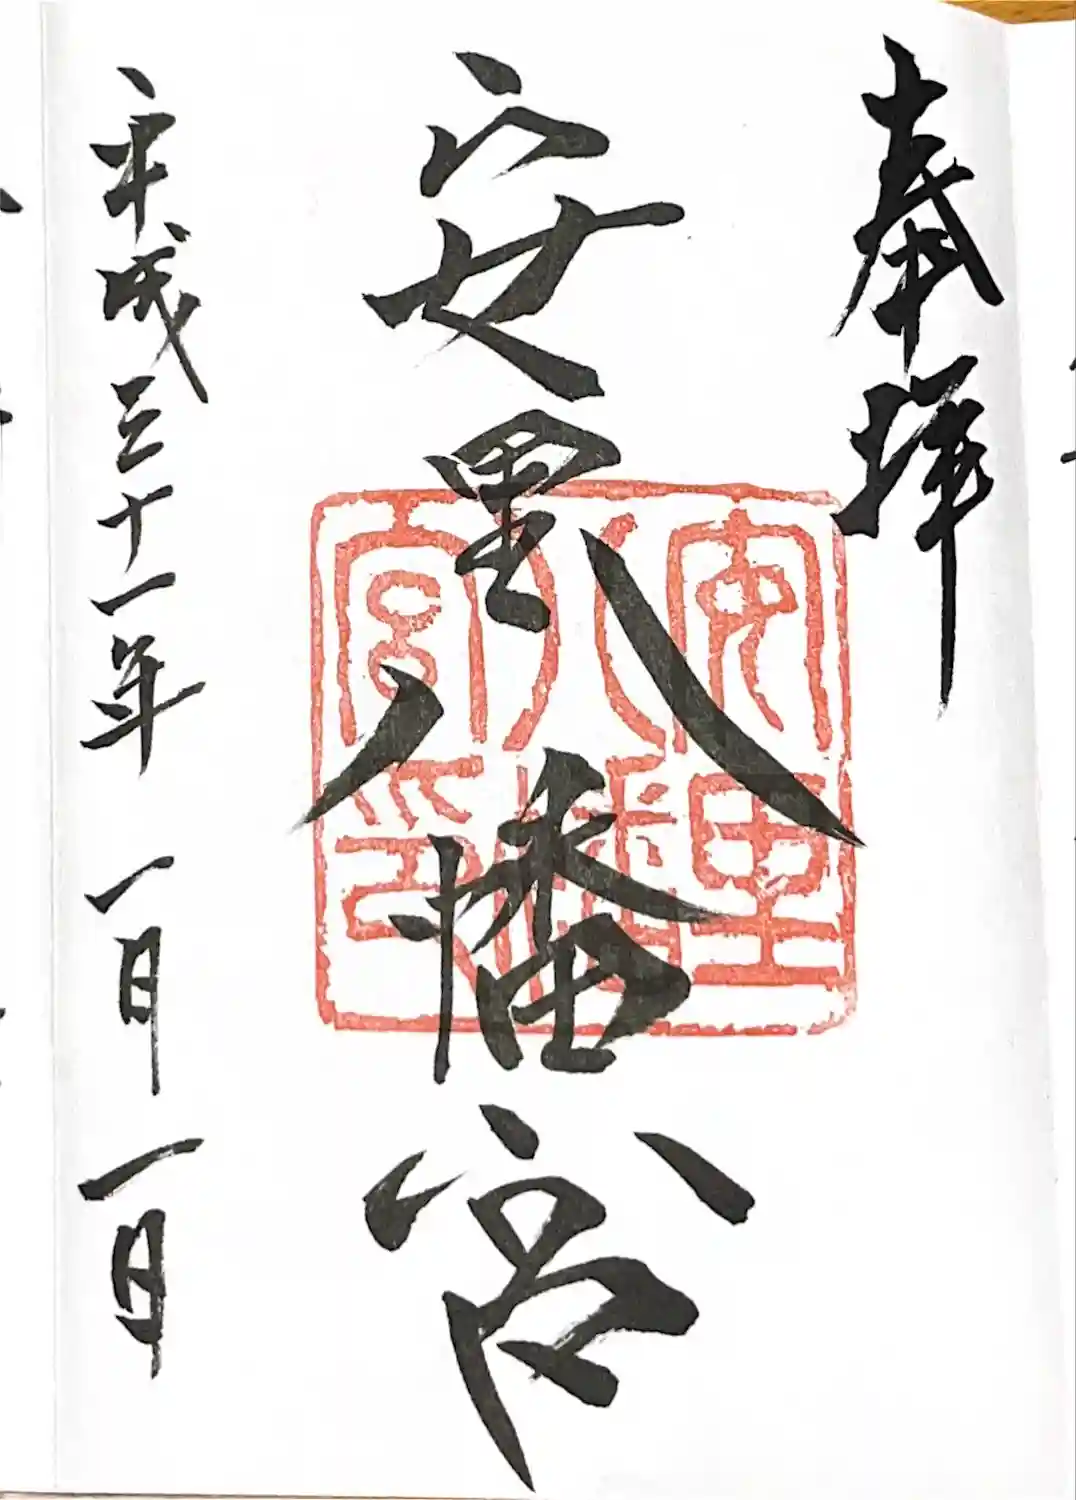 奉拝
安里八幡宮
安里八幡宮印
平成三十一年 一月一日